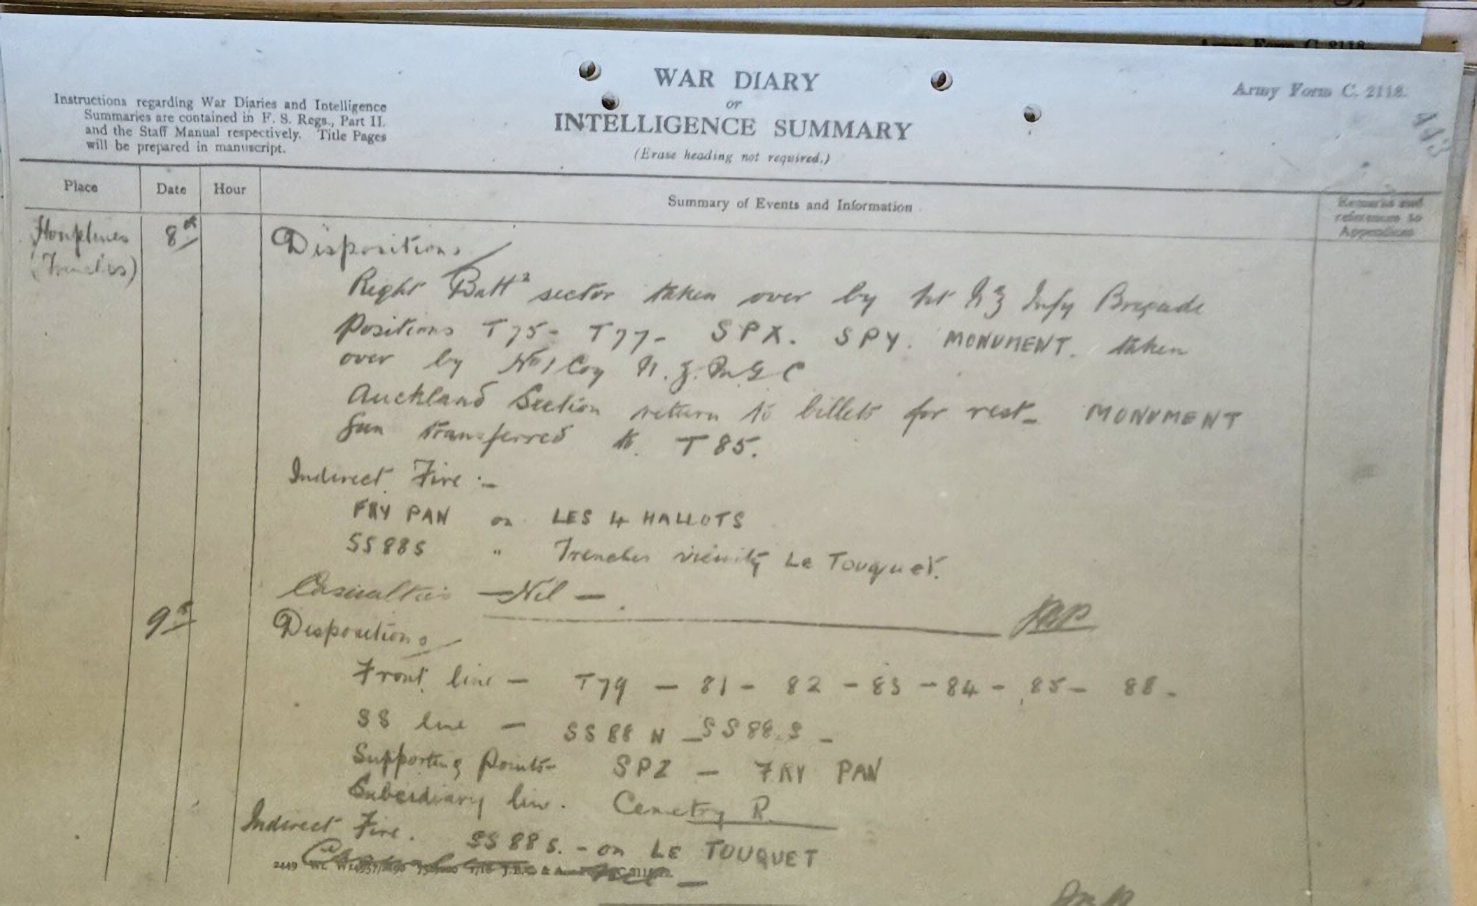 Army Form C. 2118.
WAR DIARY
or
INTELLIGENCE SUMMARY
(Erase heading not required.)
Army Form C. 2118.
113
Instructions regarding War Diaries and Intelligence
Summaries are contained in F. S. Regs., Part II.
and the Staff Manual respectively. Title Pages
will be prepared in manuscript.
Place
Date
Hour
Summary of Events and Information
Remarks and
references to
Appendices
Houplines
(Trenches)
8th
Dispositions
Right Battn sector taken over by 1st NZ Infy Brigade
Positions T75- T77- SPX. SPY. MONUMENT. taken
over by No 1 Coy N.Z. M G C
Auckland Section return to billets for rest- MONUMENT
Gun transferred to T85.
Indirect Fire :-
FRY PAN on LES 4 HALLOTS
SS88S " Trenches vicinity Le Touquet.
Casualties - Nil -
9th
Dispositions
Front line - T79 - 81 - 82 - 83 - 84 - 85 - 88 -
SS line - SS88N - SS88.S -
Supporting Points- SPZ - FRY PAN
Subsidiary line. Cemetry R.
Indirect Fire. SS88S. - on LE TOUQUET
2449